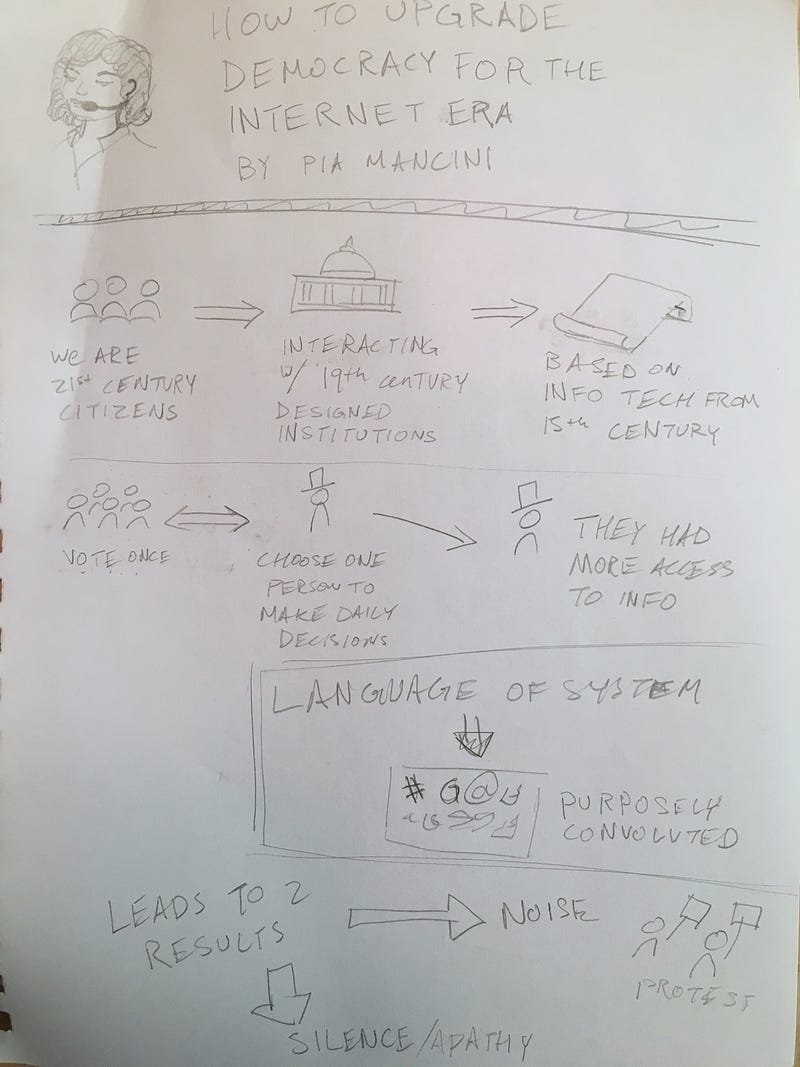 HOW TO UPGRADE
DEMOCRACY FOR THE
INTERNET ERA
BY PIA MANCINI
WE ARE
21st CENTURY
CITIZENS
INTERACTING
W/ 19th CENTURY
DESIGNED
INSTITUTIONS
BASED ON
INFO TECH FROM
15th CENTURY
VOTE ONCE
CHOOSE ONE
PERSON TO
MAKE DAILY
DECISIONS
THEY HAD
MORE ACCESS
TO INFO
LANGUAGE OF SYSTEM
PURPOSELY
CONVOLUTED
LEADS TO 2
RESULTS
NOISE
PROTEST
SILENCE/APATHY